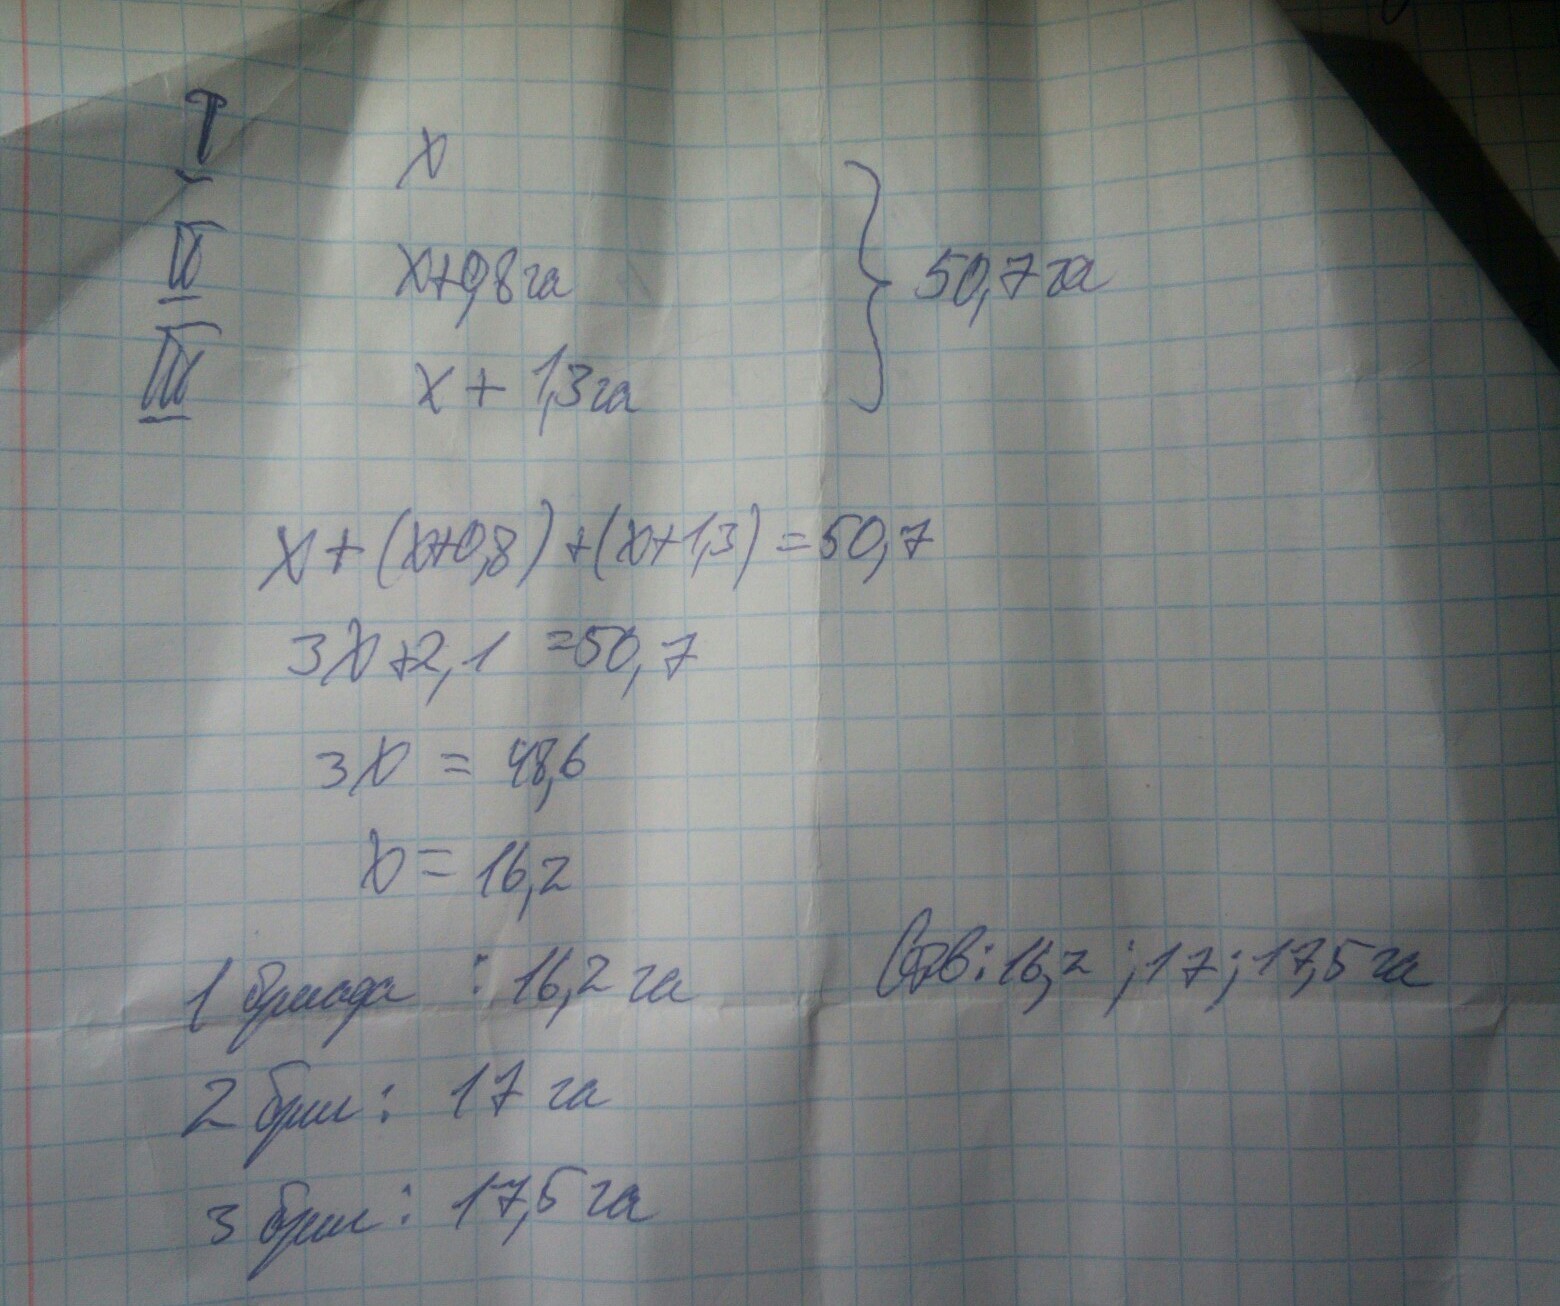 I x
II x+0,8га } 50,7га
III x + 1,3га
x+(x+0,8)+(x+1,3)=50,7
3x+2,1 =50,7
3x = 48,6
x = 16,2
1 бригада : 16,2 га Отв: 16,2 ; 17 ; 17,5 га
2 бриг: 17 га
3 бриг: 17,5 га